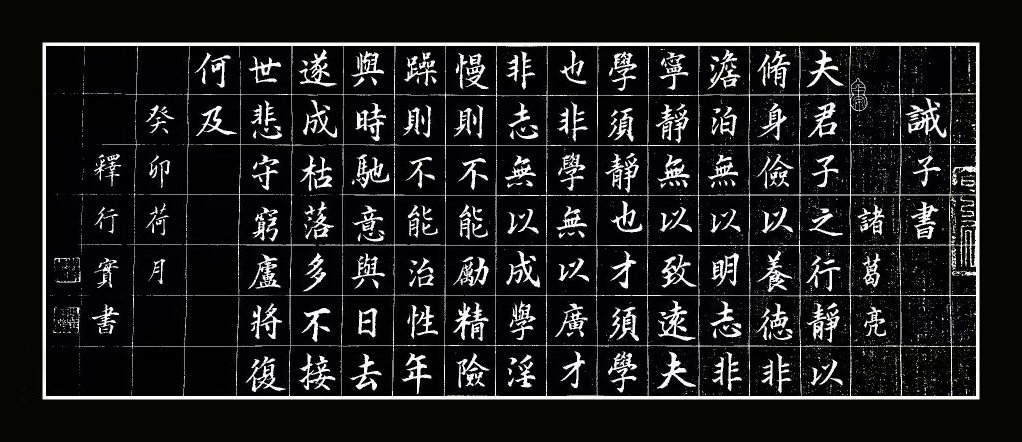 誡子書
諸葛亮
夫君子之行靜以
脩身儉以養德非
澹泊無以明志非
寧靜無以致遠夫
學須靜也才須學
也非學無以廣才
非志無以成學淫
慢則不能勵精險
躁則不能治性年
與時馳意與日去
遂成枯落多不接
世悲守窮廬將復
何及
癸卯荷月
釋行實書